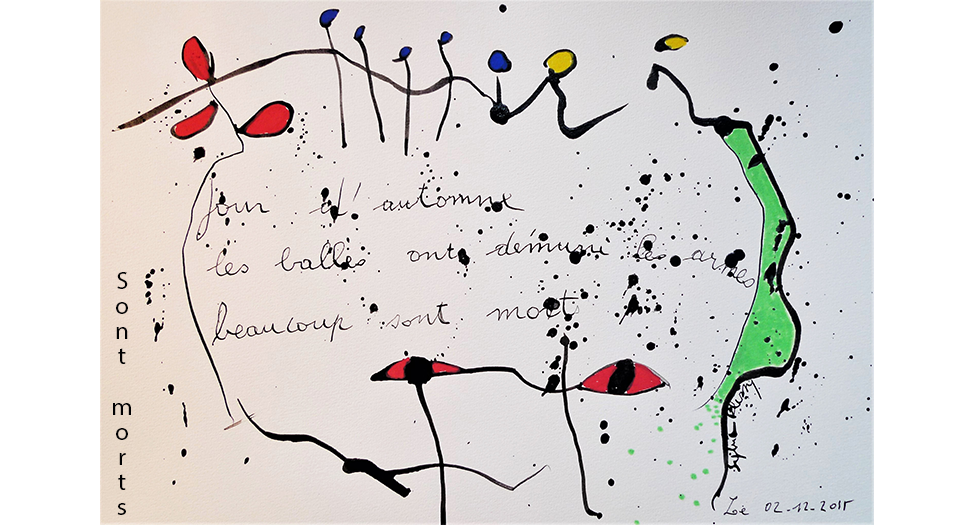 Jour d'automne
les balles ont démuni les armes
beaucoup sont morts
Sont morts
Zoé 02-12-2015